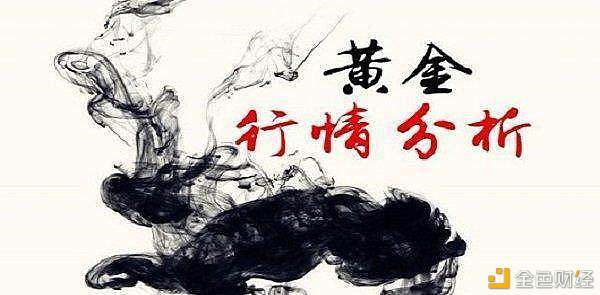 黄金
行情分析
金色财经